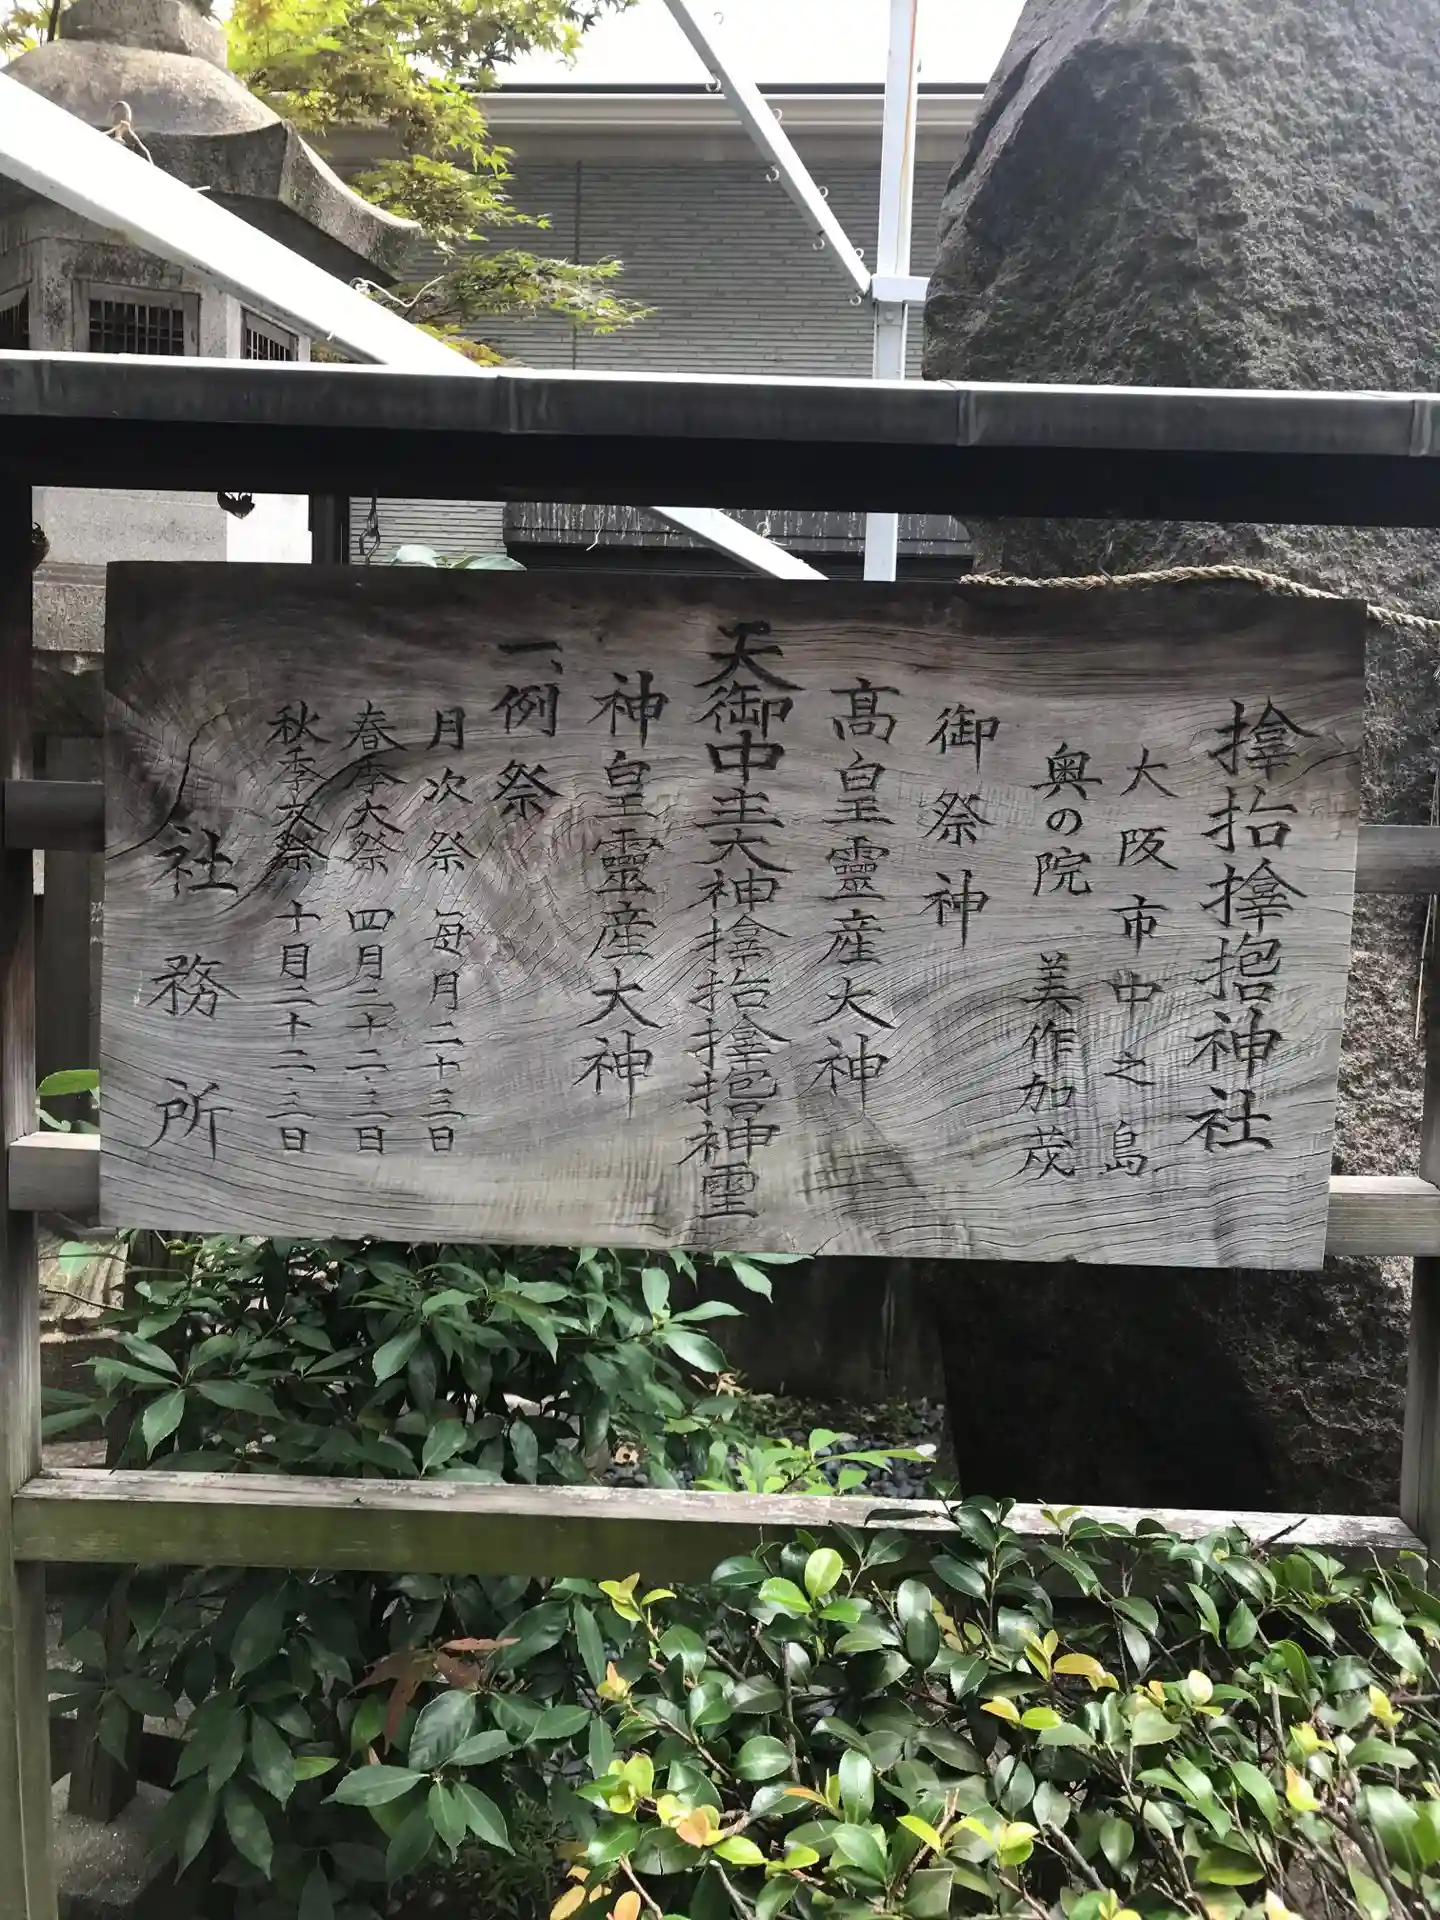 神社
大阪市中之島
奥の院 美作加茂
御祭神
髙皇靈産大神
天御中主大神 神
神皇靈産大神
一、例祭
月次祭 毎月二十三日
春季大祭 四月二十二・三日
秋季大祭 十月二十二・三日
社務所